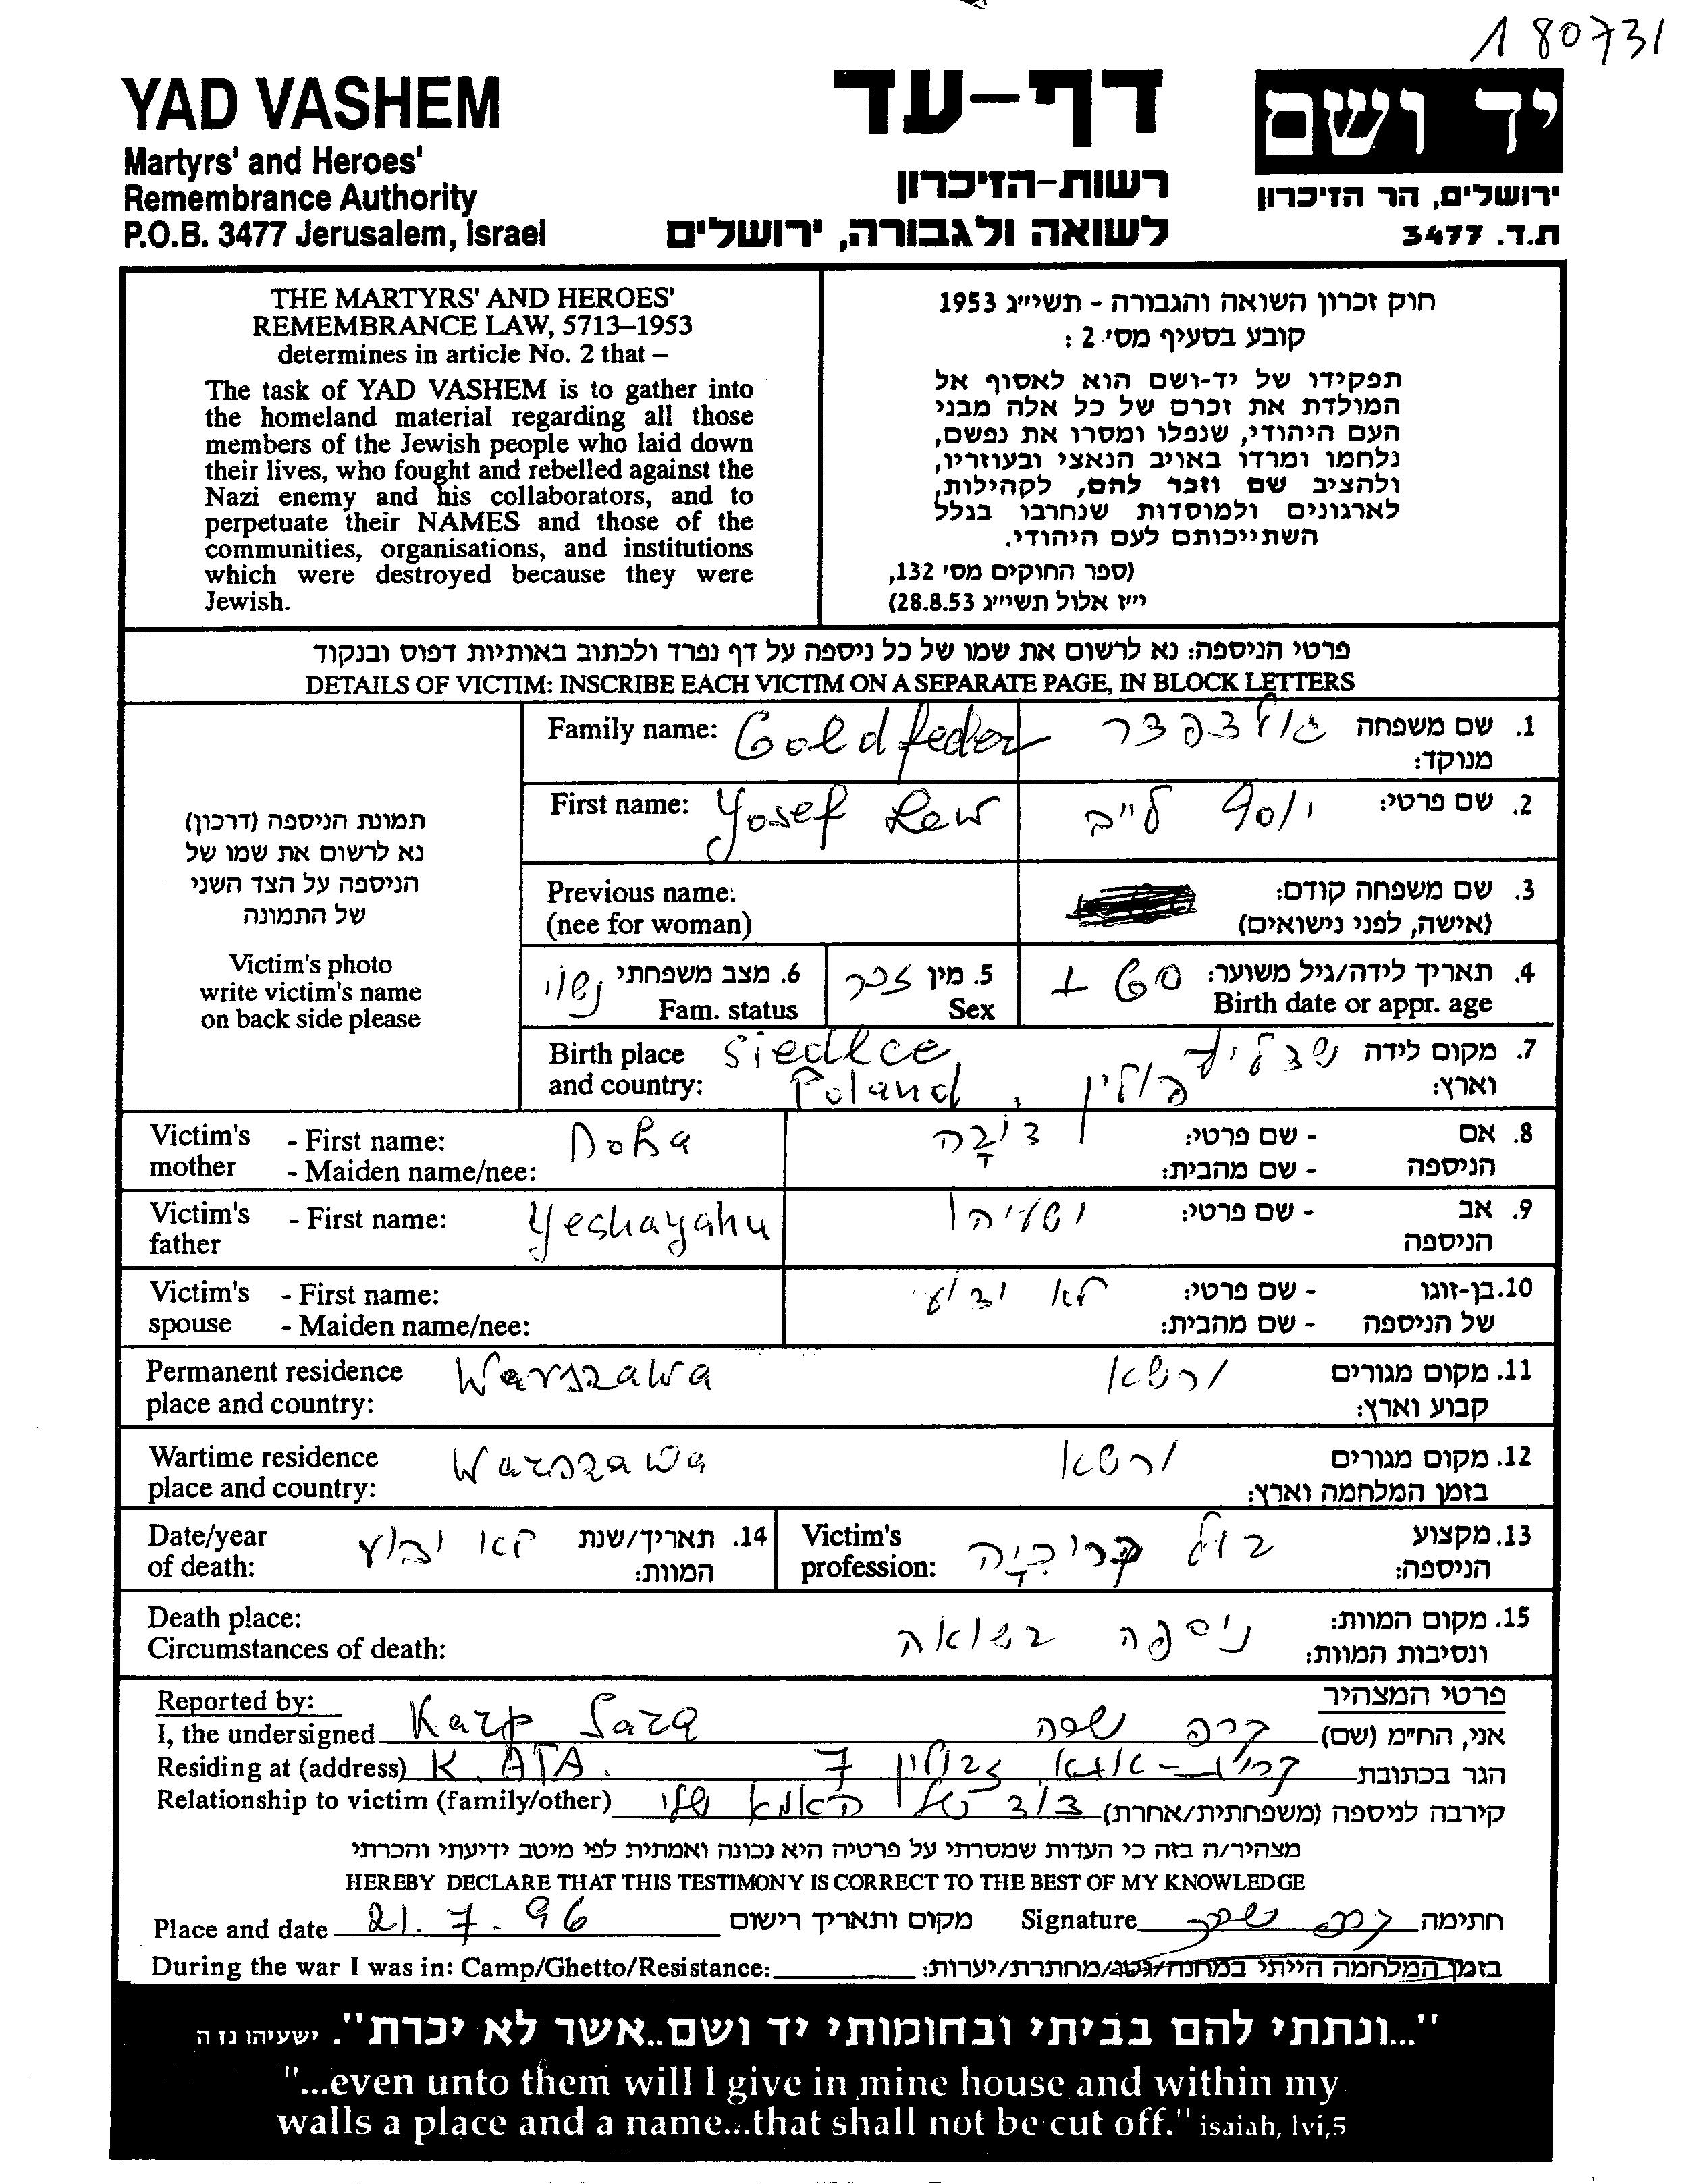 180731
YAD VASHEM
Martyrs' and Heroes'
Remembrance Authority
P.O.B. 3477 Jerusalem, Israel
דף-עד
רשות-הזיכרון
לשואה ולגבורה, ירושלים
יד ושם
ירושלים, הר הזיכרון
ת.ד. 3477
THE MARTYRS' AND HEROES'
REMEMBRANCE LAW, 5713–1953
determines in article No. 2 that –
The task of YAD VASHEM is to gather into
the homeland material regarding all those
members of the Jewish people who laid down
their lives, who fought and rebelled against the
Nazi enemy and his collaborators, and to
perpetuate their NAMES and those of the
communities, organisations, and institutions
which were destroyed because they were
Jewish.
חוק זכרון השואה והגבורה - תשי״ג 1953
קובע בסעיף מס׳ 2 :
תפקידו של יד-ושם הוא לאסוף אל
המולדת את זכרם של כל אלה מבני
העם היהודי, שנפלו ומסרו את נפשם,
נלחמו ומרדו באויב הנאצי ובעוזריו,
ולהציב שם וזכר להם, לקהילות,
לארגונים ולמוסדות שנחרבו בגלל
השתייכותם לעם היהודי.
(ספר החוקים מס׳ 132,
י״ז אלול תשי״ג 28.8.53)
פרטי הניספה: נא לרשום את שמו של כל ניספה על דף נפרד ולכתוב באותיות דפוס ובנקוד
DETAILS OF VICTIM: INSCRIBE EACH VICTIM ON A SEPARATE PAGE, IN BLOCK LETTERS
תמונת הניספה (דרכון)
נא לרשום את שמו של
הניספה על הצד השני
של התמונה
Victim's photo
write victim's name
on back side please
Family name: Goldfeder גולדפדר 1. שם משפחה
מנוקד:
First name: Yosef Lew יוסף לייב 2. שם פרטי:
Previous name: 3. שם משפחה קודם:
(nee for woman) (אישה, לפני נישואים)
4. תאריך לידה/גיל משוער: 60 +
Birth date or appr. age
5. מין זכר
Sex
6. מצב משפחתי נשוי
Fam. status
Birth place Siedlce, 7. מקום לידה
and country: Poland, פולין וארץ:
Victim's - First name: Doba דוֹבָה - שם פרטי: 8. אם
mother - Maiden name/nee: - שם מהבית: הניספה
Victim's - First name: Yeshayahu ישעיהו - שם פרטי: 9. אב
father הניספה
Victim's - First name: לא ידוע - שם פרטי: 10. בן-זוגו
spouse - Maiden name/nee: - שם מהבית: של הניספה
Permanent residence Warszawa ורשא 11. מקום מגורים
place and country: קבוע וארץ:
Wartime residence Warszawa ורשא 12. מקום מגורים
place and country: בזמן המלחמה וארץ:
Date/year לא ידוע 14. תאריך/שנת
of death: המוות:
Victim's 13. מקצוע
profession: הניספה:
Death place: ניספה בשואה 15. מקום המוות:
Circumstances of death: ונסיבות המוות:
Reported by: פרטי המצהיר
I, the undersigned Karp Sara קרפ שרה אני, הח״מ (שם)
Residing at (address) K. ATA. קרית-אתא זבולון 7 הגר בכתובת
Relationship to victim (family/other) דוד של האמא שלי קירבה לניספה (משפחתית/אחרת)
מצהיר/ה בזה כי העדות שמסרתי על פרטיה היא נכונה ואמתית לפי מיטב ידיעתי והכרתי
HEREBY DECLARE THAT THIS TESTIMONY IS CORRECT TO THE BEST OF MY KNOWLEDGE
Place and date 21.7.96 מקום ותאריך רישום Signature קרפ שרה חתימה
During the war I was in: Camp/Ghetto/Resistance: בזמן המלחמה הייתי במחנה/גטו/מחתרת/יערות:
"...ונתתי להם בביתי ובחומותי יד ושם..אשר לא יכרת". ישעיהו נו ה
"...even unto them will I give in mine house and within my
walls a place and a name...that shall not be cut off." isaiah, lvi,5